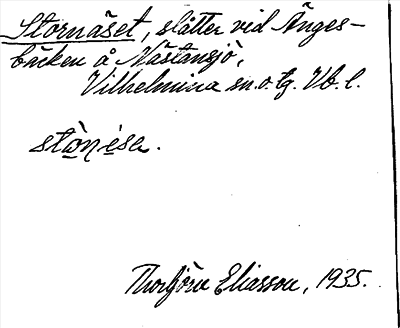 Stornäset, slåtter vid Änges-
bäcken å Nästansjö,
Vilhelmina sn. o. tg. Vb. l.
stòṇesa.
Thorbjörn Eliasson, 1935.